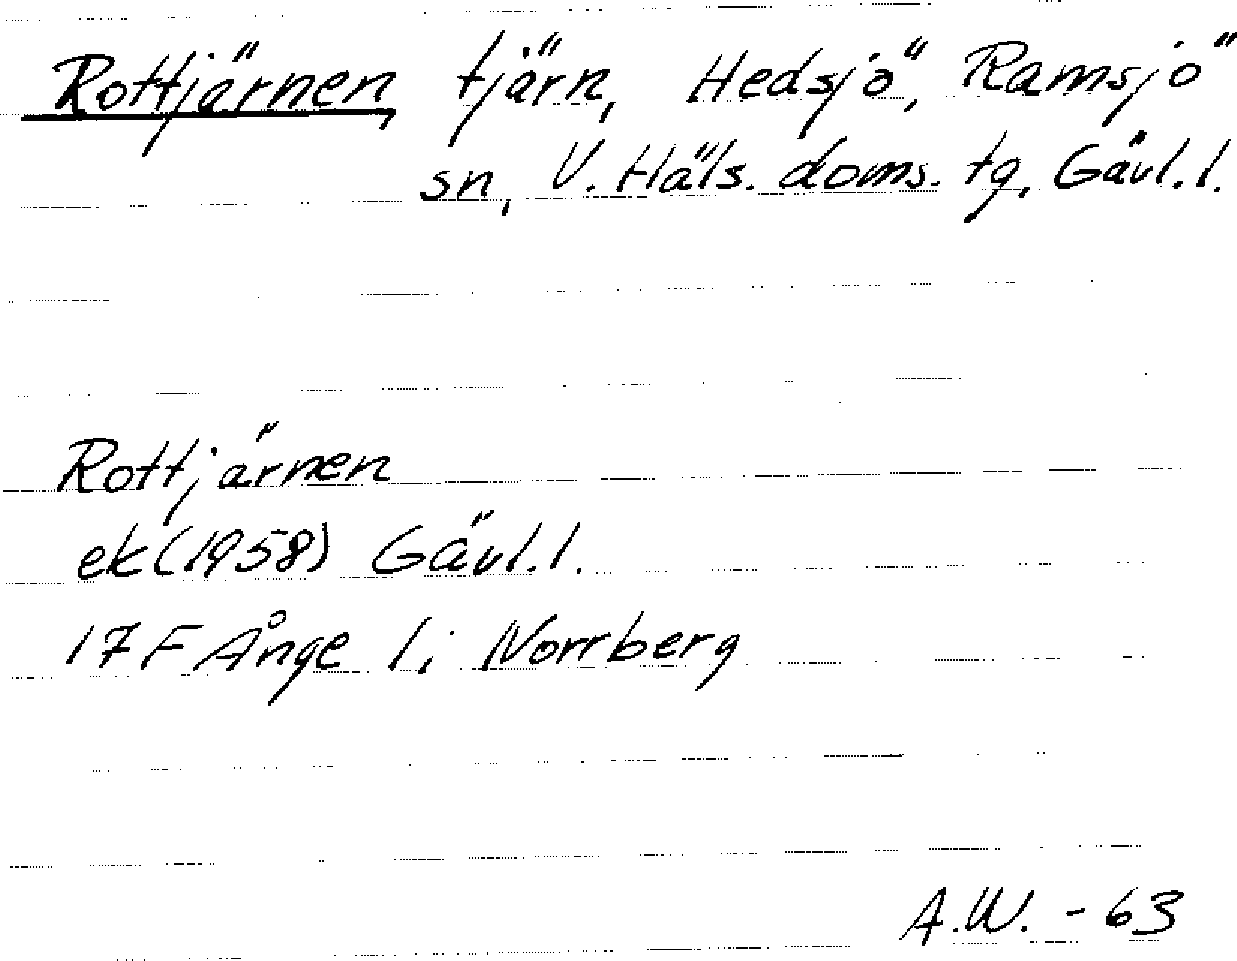 Rottjärnen, tjärn, Hedsjö, Ramsjö
sn, V. Häls. doms. tg, Gävl. l.
Rottjärnen
ek (1958) Gävl. l.
17 F Ånge 1; Norrberg
A.W. - 63